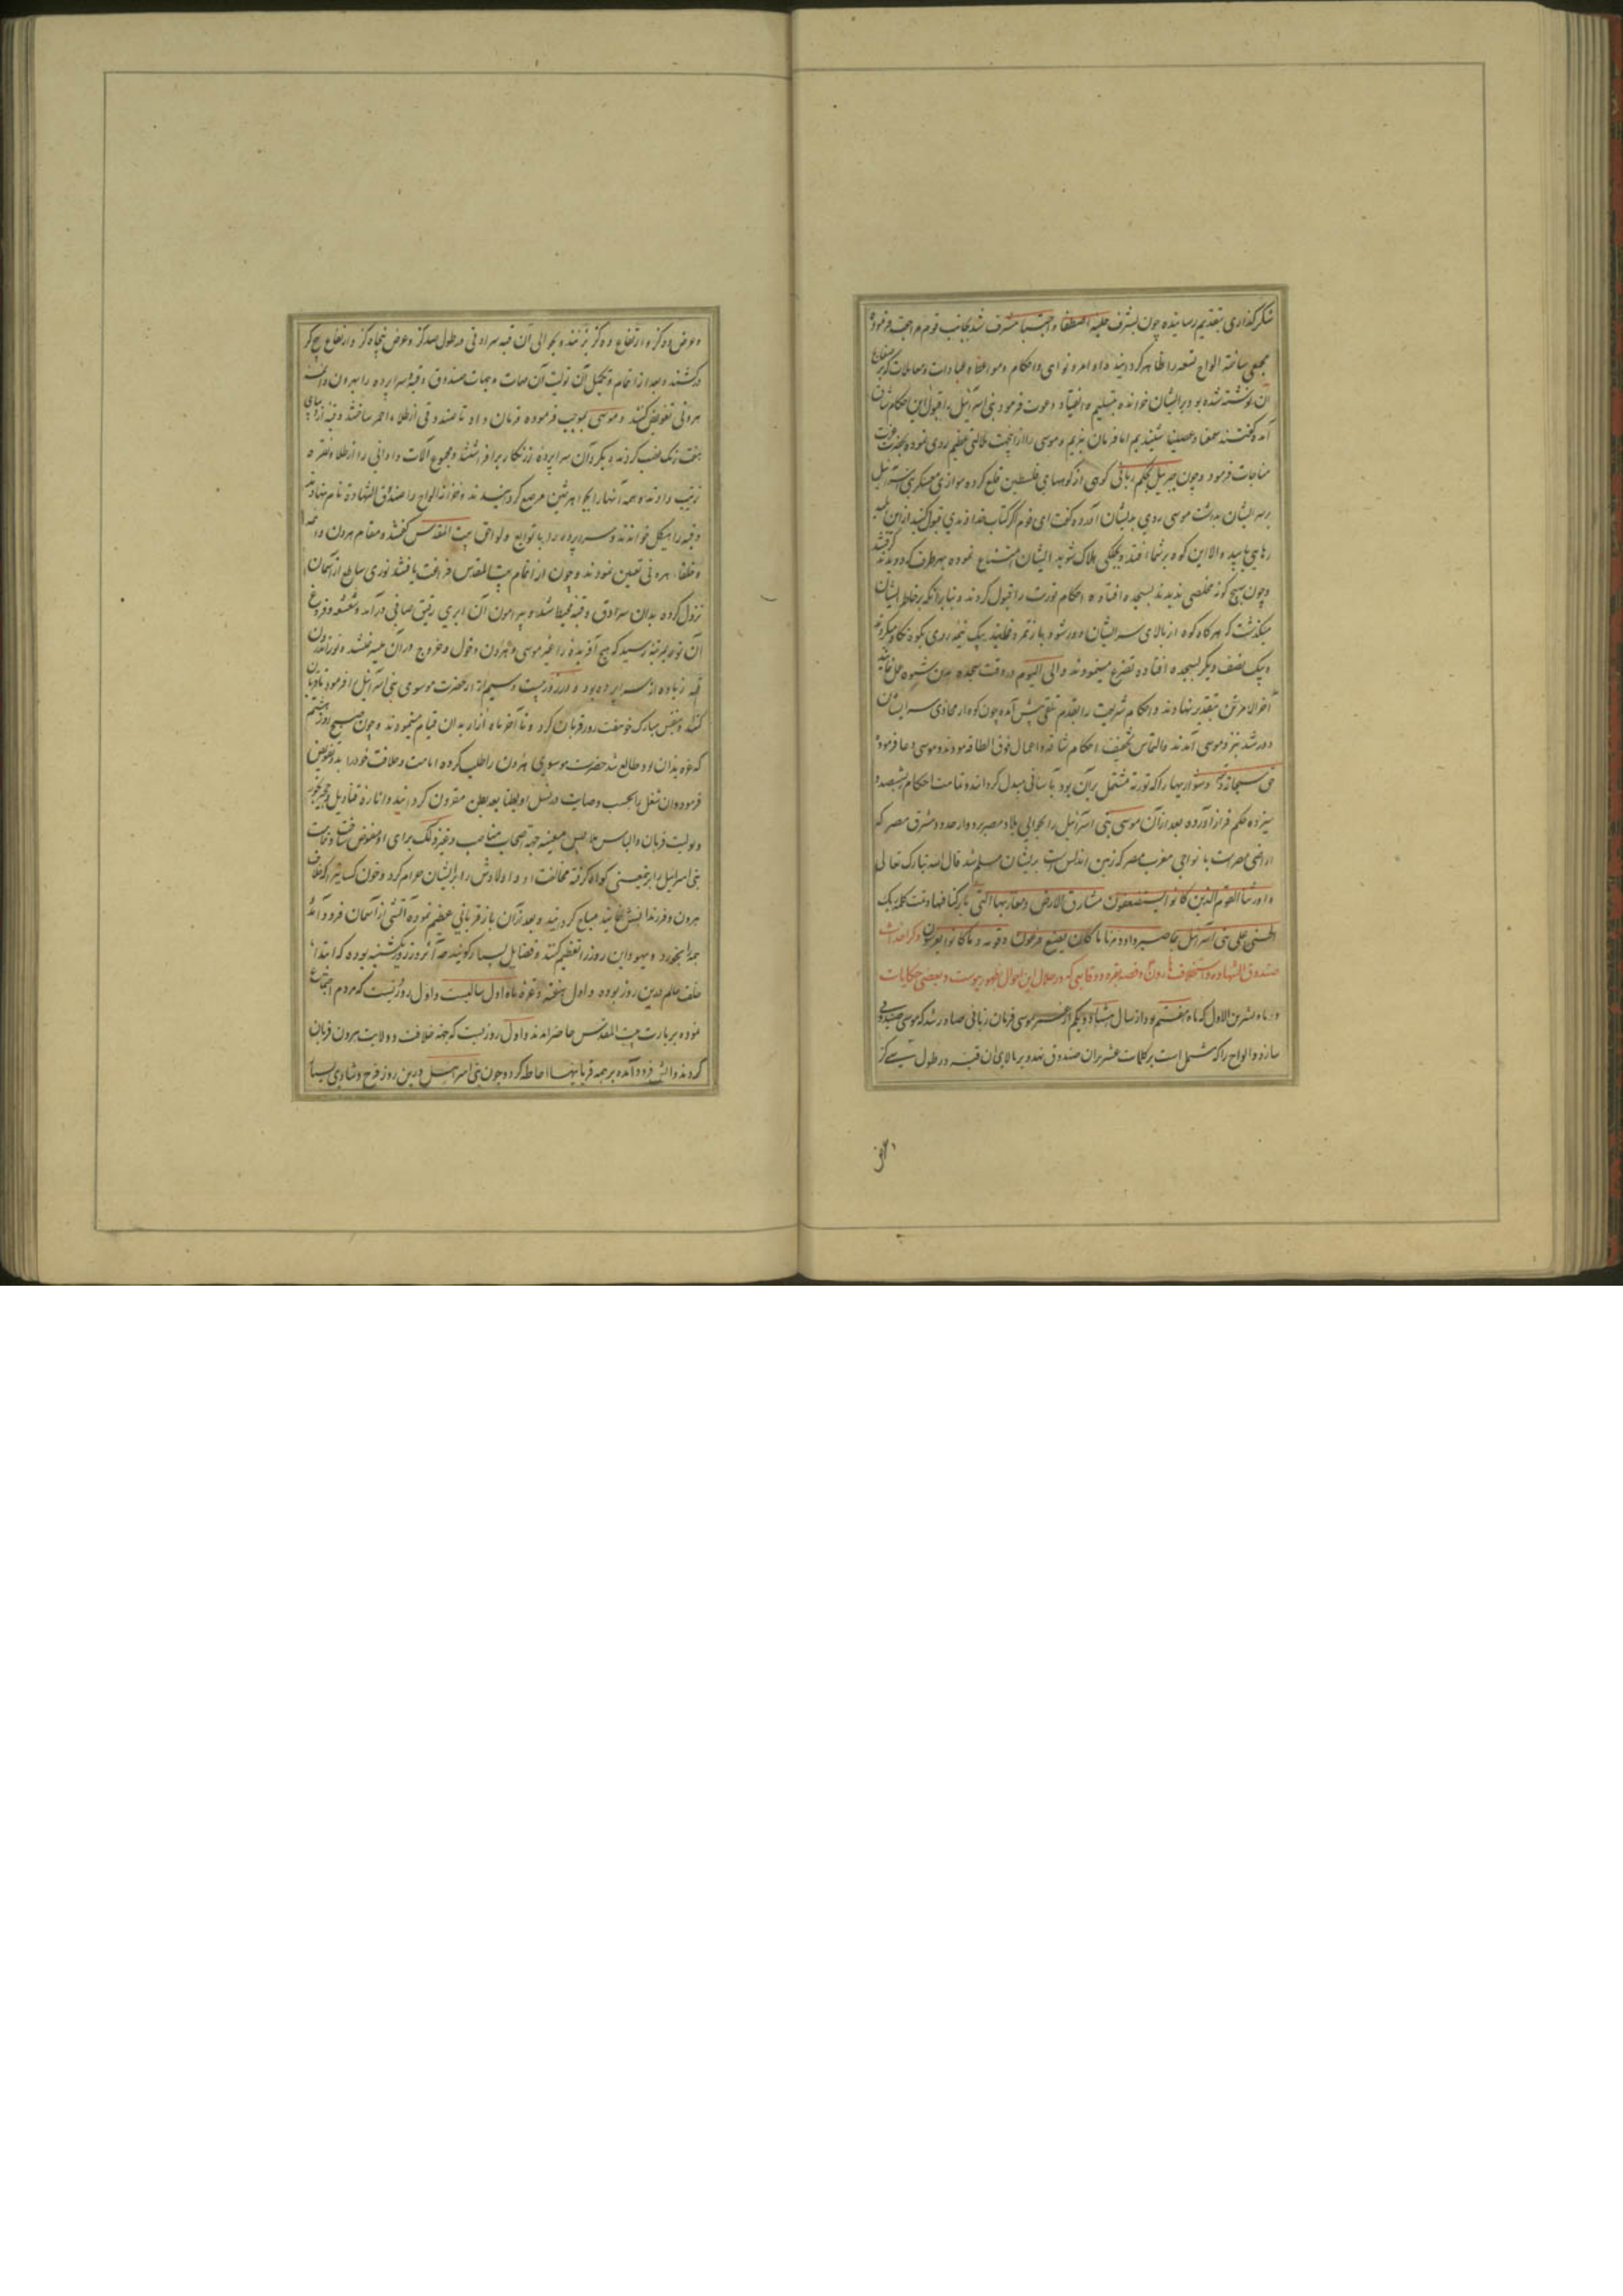 شکرگذاری بتقدیم رسانیده چون بشرف حلیه اصطفا و اجتبا مشرف شد بجانب قوم مراجعت فرموده
مجمعی ساخته الواح تسعه را ظاهر گردانید و اوامر و نواهی و احکام و مواعظ و عبادات و معاملات که بر صفایح
آن نوشته شده بود بر ایشان خوانده بتسلیم و انقیاد دعوت فرمود بنی اسرائیل را قبول این احکام شاق
آمد و گفتند سمعنا و عصینا شنیدیم اما فرمان نبریم و موسی را ازین جهت ملالتی عظیم روی نموده بحضرت عزت
مناجات فرمود و چون جبرئیل بحکم ربانی کوهی از کوههای فلسطین قلع کرده موازی معسکر بنی اسرائیل
بر سر ایشان بداشت موسی روی بدیشان آورده گفت ای قوم اگر کتاب خداوندی قبول کنید ازین بلیه
رهایی یابید و الا این کوه بر شما افتد و بکلی هلاک شوید ایشان امتناع نموده بهر طرف که دویدند
و چون هیچ گونه مخلصی ندیدند بسجده افتاده احکام توریت را قبول کردند و بنا بر آنکه بر خاطر ایشان
میگذشت که هر گاه کوه از بالای سر ایشان دور شود باز تمرد نمایند بیک نیمه روی بکوه نگاه میکردند
و بیک نصف دیگر بسجده افتاده تضرع مینمودند و الی الیوم در وقت سجده بدین شیوه عمل نمایند
آخر الامر تن بتقدیر نهادند و احکام شریعت را بقدم تلقی پیش آمده چون کوه از محاذی سر ایشان
دور شد نزد موسی آمدند و التماس تخفیف احکام شاقه و اعمال فوق الطاقه نمودند و موسی دعا فرموده
حق سبحانه و دشواریها را که توریة مشتمل بر آن بود بآسانی مبدل گردانده و تمامت احکام بششصد و
سیزده حکم قرار آورده بعد از آن موسی بنی اسرائیل را بحوالی بلاد مصر برد و از حدود مشرق مصر که
اراضی مصرست با نواحی مغرب مصر که زمین اندلس است بریشان مسلم شد قال الله تبارک تعالی
و اورثنا القوم الذین کانوا یستضعفون مشارق الارض و مغاربها التی بارکنا فیها و تمت کلمة ربک
الحسنی علی بنی اسرائیل بما صبروا و دمرنا ما کان یصنع فرعون و قومه و ما کانوا یعرشون ذکر احداث
صندوق الشهاده و استخلاف هارون و قصه بقره و وقایعی که در خلال این احوال بظهور پیوست و بعضی حکایات
در ماه تشرین الاول که ماه هفتم بود از سال هشتاد و یکم از عمر موسی فرمان ربانی صادر شد که موسی صندوقی
سازد و الواح را که مشتمل است بر کلمات عشر در آن صندوق نهد و بر بالای آن قبه در طول سی گز
و عرض ده گز و ارتفاع ده گز بزنند و بحوالی آن قبه سرادقی در طول صد گز و عرض پنجاه گز و ارتفاع پنج گز
در کشند و بعد از اتمام و تکمیل آن تولیت آن مهمات و جهات صندوق و قبه و سراپرده را بهرون و ائمه
هرونی تفویض کنند و موسی بموجب فرموده فرمان داد تا صندوقی از طلاء احمر ساختند و قبه از دیبای
هفت رنگ نصب کردند و بگرد آن سراپرده زرنگار برافراشتند و مجموع آلات و اوانی را از طلا و نقره
ترتیب دادند و همه آنها را بجواهر ثمین مرصع گردانیدند و خزانه الواح را صندوق الشهادة نام نهادند
و قبه را هیکل خواندند و سراپرده را با توابع و لواحق بیت المقدس گفتند و مقام هرون و ائمه
و خلفاء هرونی تعیین نمودند و چون از اتمام بیت المقدس فراغت یافتند نوری ساطع از آسمان
نزول کرده بدان سرادق و قبه محیط شد و پیرامون آن ابری رقیق صافی درآمد و شعشعه و فروغ
آن نور بمرتبه رسید که هیچ آفریده را غیر موسی و هرون دخول و خروج در آن میسر نشد و نور اندرون
قبه زیاده از سراپرده بود و در روز بیست و سیم آذار حضرت موسوی بنی اسرائیل را فرمود تا قربان
کنند و بنفس مبارک خود هفت روز قربان کرد و تا آخر ماه آذار بدان قیام مینمودند و چون صبح روز هشتم
که غره نیسان بود طالع شد حضرت موسوی هرون را طلب کرده امامت و خلافت خود را بدو تفویض
فرمود و آن شغل را بحسب وصایت در نسل او بطنا بعد بطن مقرون گردانید و انارة قنادیل و تجمیر بخور
و تولیت قربان و الباس ملابس معینه جهة اصحاب مناصب و غیر ذلک برای او مفوض ساخت و تمامت
بنی اسرائیل را برین معنی گواه گرفته مخالفت او و اولادش را بر ایشان حرام کرد و خون کسانی را که خلاف
هرون و فرزندانش نمایند مباح گردانید و بعد از آن باز قربانی عظیم نموده آتشی از آسمان فرود آمد
همه را بخورد و یهود این روز را تعظیم کنند و فضایل بسیار گویند چه آن روز یکشنبه بوده که ابتداء
خلقت عالم درین روز بوده و اول هفته و غره ماه اول سالیست و اول روزیست که مردم اجتماع
نموده بزیارت بیت المقدس حاضر آمدند و اول روزیست که جهة خلافت و ولایت هرون قربان
کردند و آتش فرود آمده بر همه قربانیها احاطه کرد و چون بنی اسرائیل درین روز فرح و شادی بسیار